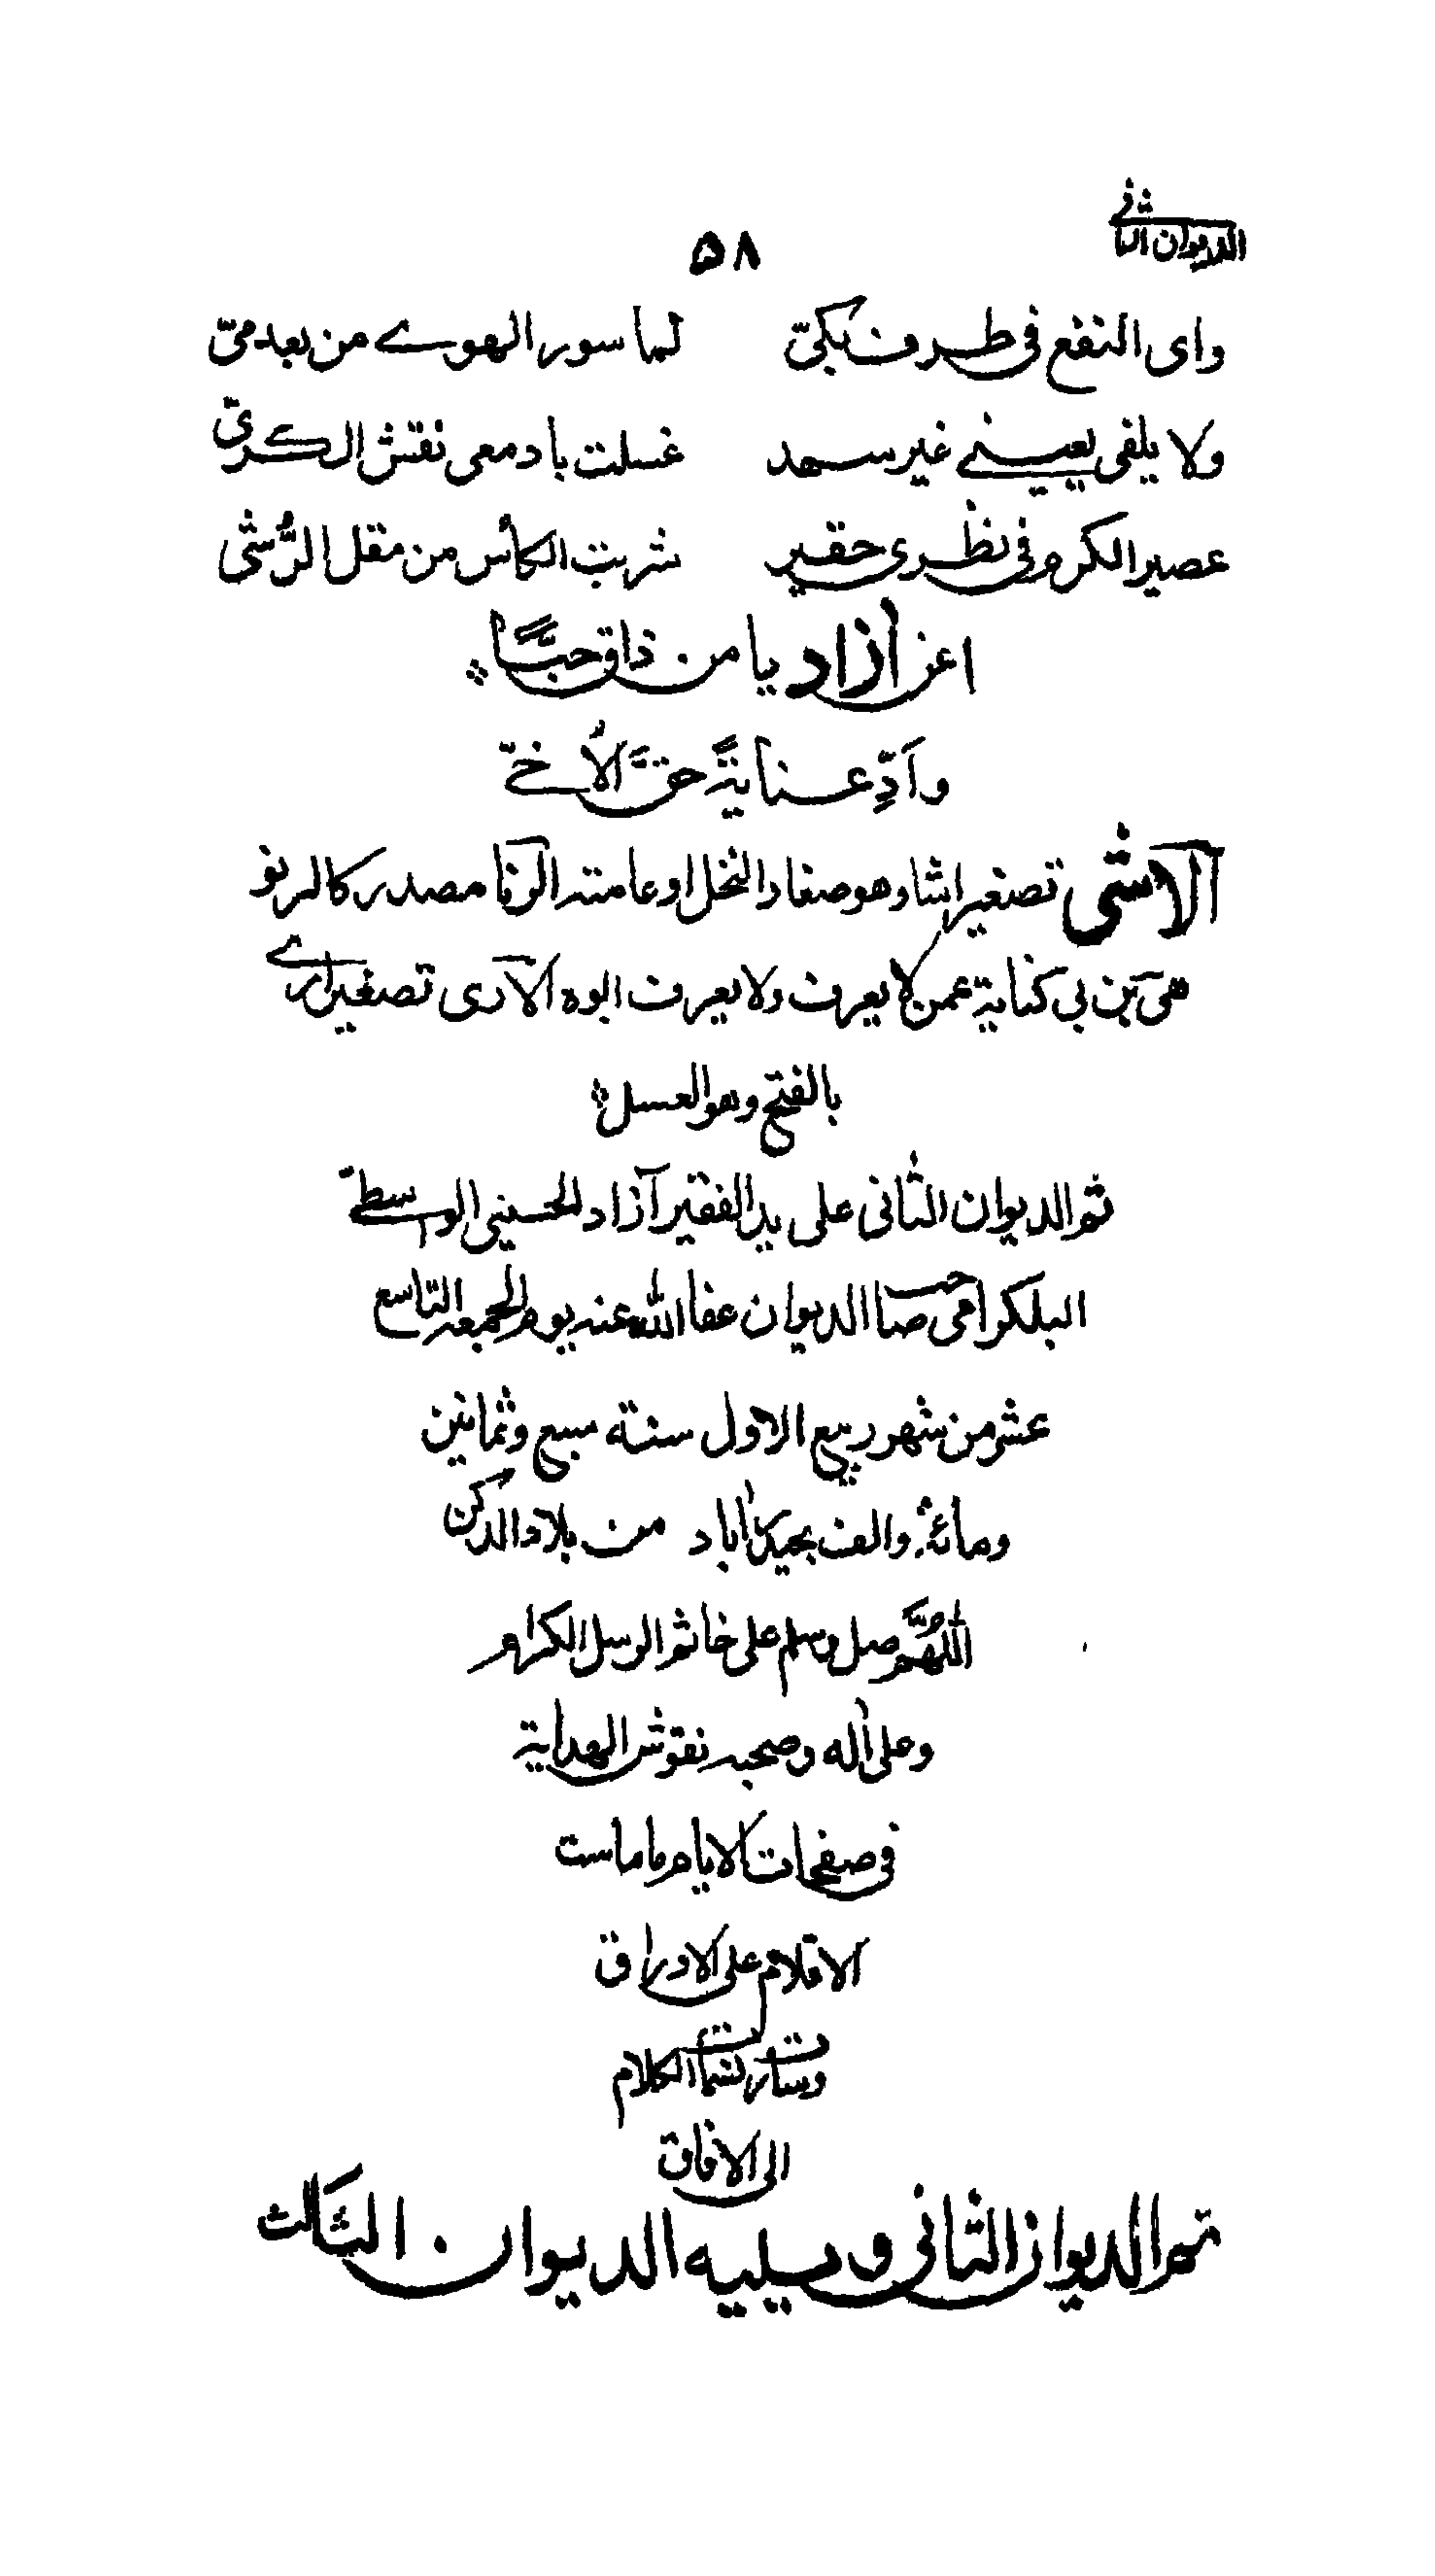 الديوان الثانى
۵۸
واى النفع فى طرف بكىّ لما سور الهوے من بعد مىّ
ولا يلفى بعينے غير سهد غسلت بادمعى نقش الكرىّ
عصير الكرم فى نظرى حقير شربت الكأس من مقل الرُّشىّ
اعن اٰزاد يا من ذاق حبًّا
واَدِّ عناية حقَّ الاُخىّ
الاشى تصغير اشاء وهو صغار النخل او عامته الرنا مصدر كالرنو
هى بن بى كناية عمن لا يعرف ولا يعرف ابوه الآرى تصغير ارے
بالفتح وهو العسل
تم الديوان الثانى على يد الفقير آزاد الحسينى الواسطے
البلكرامى صاحب الديوان عفا الله عنه يوم الجمعه التاسع
عشر من شهر ربيع الاول سنة سبع وثمانين
ومائة والف بحيدراٰباد من بلاد الدكن
اللّٰهُمَّ صل وسلم على خاتم الرسل الكرام
وعلى اٰله وصحبه نقوش الهداية
فى صفحات الايام ما ماست
الاقلام على الاوراق
وسارت نسمات الكلام
الى الافاق
تم الديوان الثانى ويليه الديوان الثالث